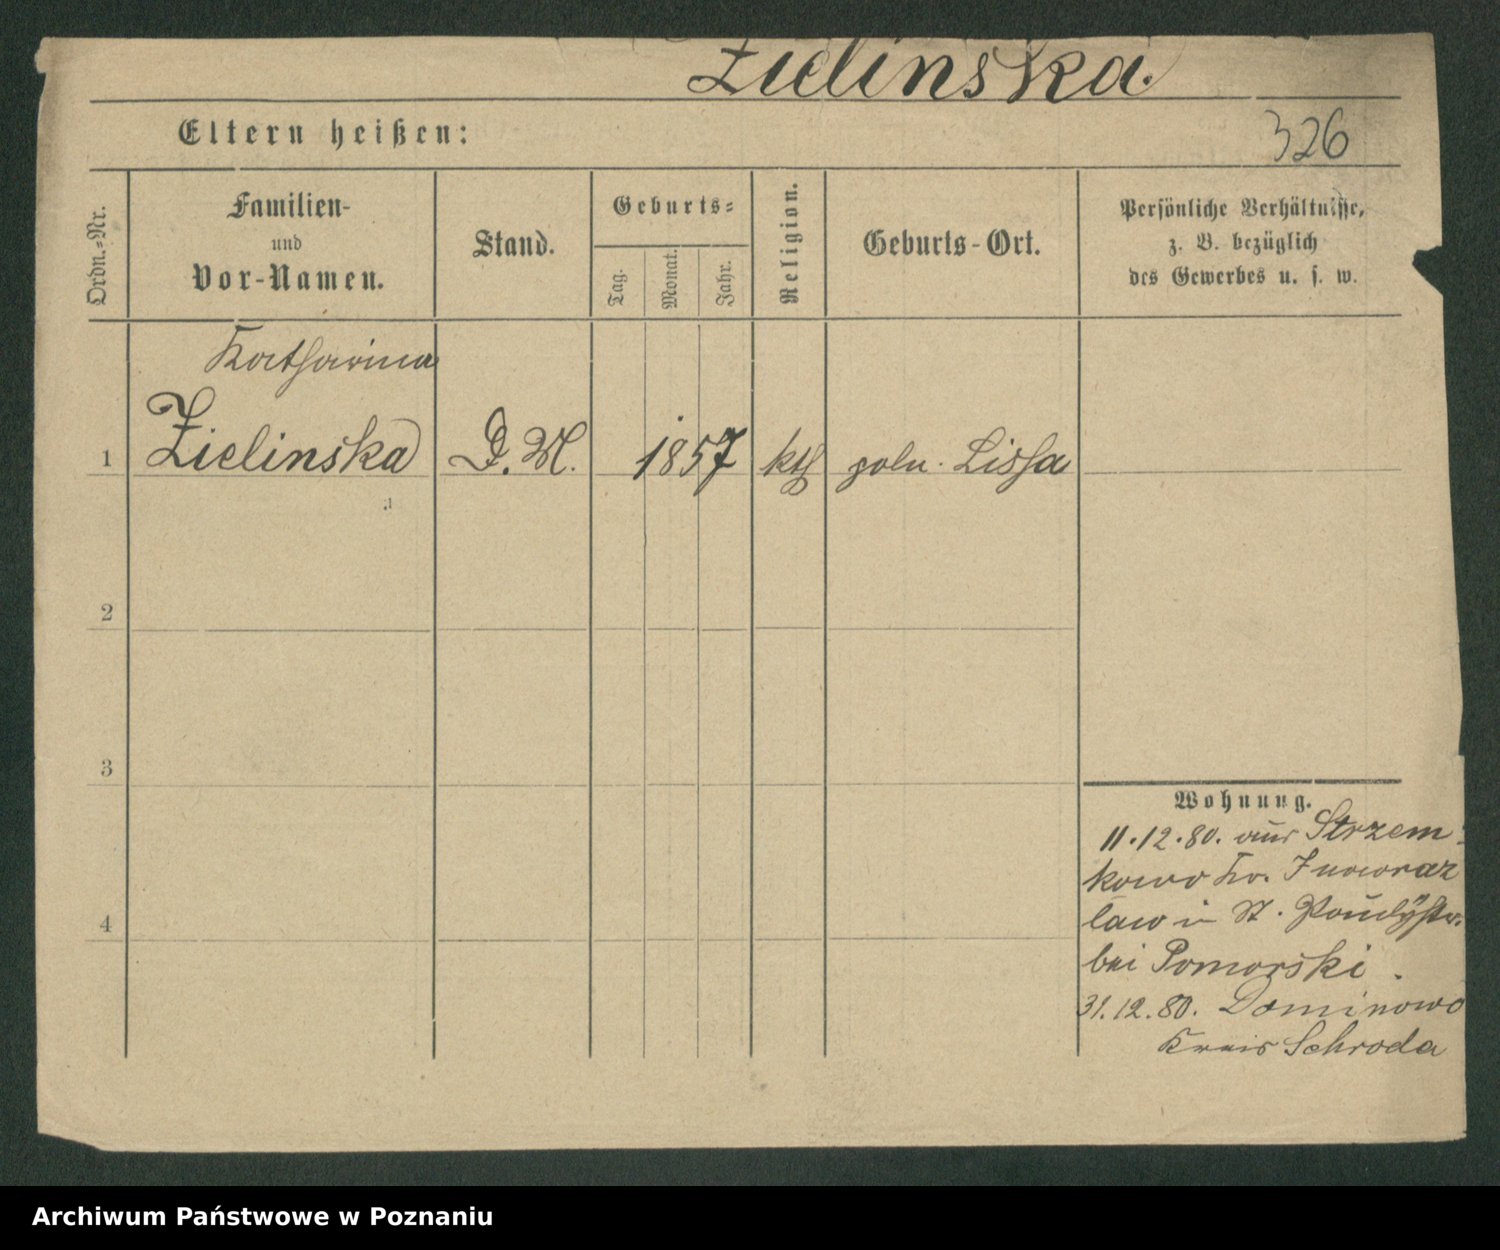 Zielinska.
Eltern heißen:
326
Ordn.=Nr.
Familien-
und
Vor-Namen.
Stand.
Geburts=
Tag.
Monat.
Jahr.
Religion.
Geburts-Ort.
Persönliche Verhältnisse,
z. B. bezüglich
des Gewerbes u. s. w.
Katharina
1 Zielinska D. M. 1857 kth poln. Lissa
2
3
4
Wohnung.
11.12.80. aus Strzem-
kowo Kr. Inowraz
law in St.
bei Pomorski.
31.12.80. Dominowo
Kreis Schroda
Archiwum Państwowe w Poznaniu